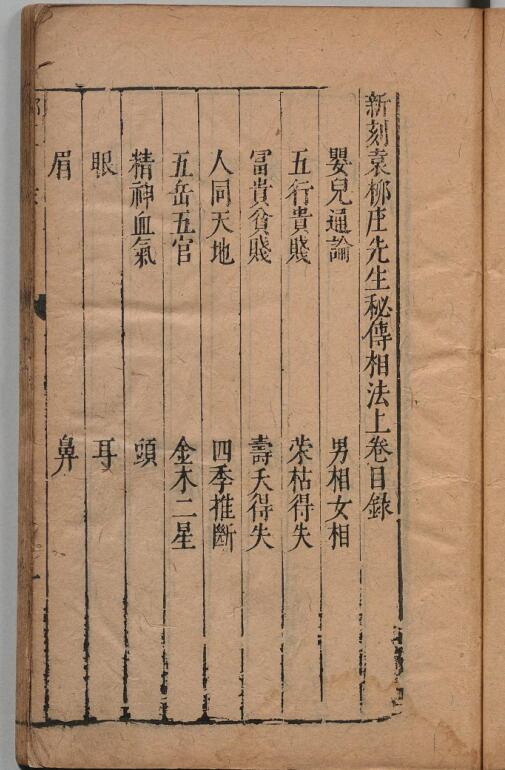 新刻袁柳庄先生秘傳相法上卷目錄
嬰兒通論　男相女相
五行貴賤　荣枯得失
冨貴貧賤　壽夭得失
人同天地　四季推斷
五岳五官　金木二星
精神血氣　頭
眼　耳
眉　鼻